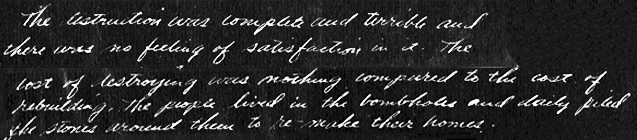 The destruction was complete and terrible and
there was no feeling of satisfaction in it. The
cost of destroying was nothing compared to the cost of
rebuilding. The people lived in the bombholes and daily piled
the stones around them to re-make their homes.